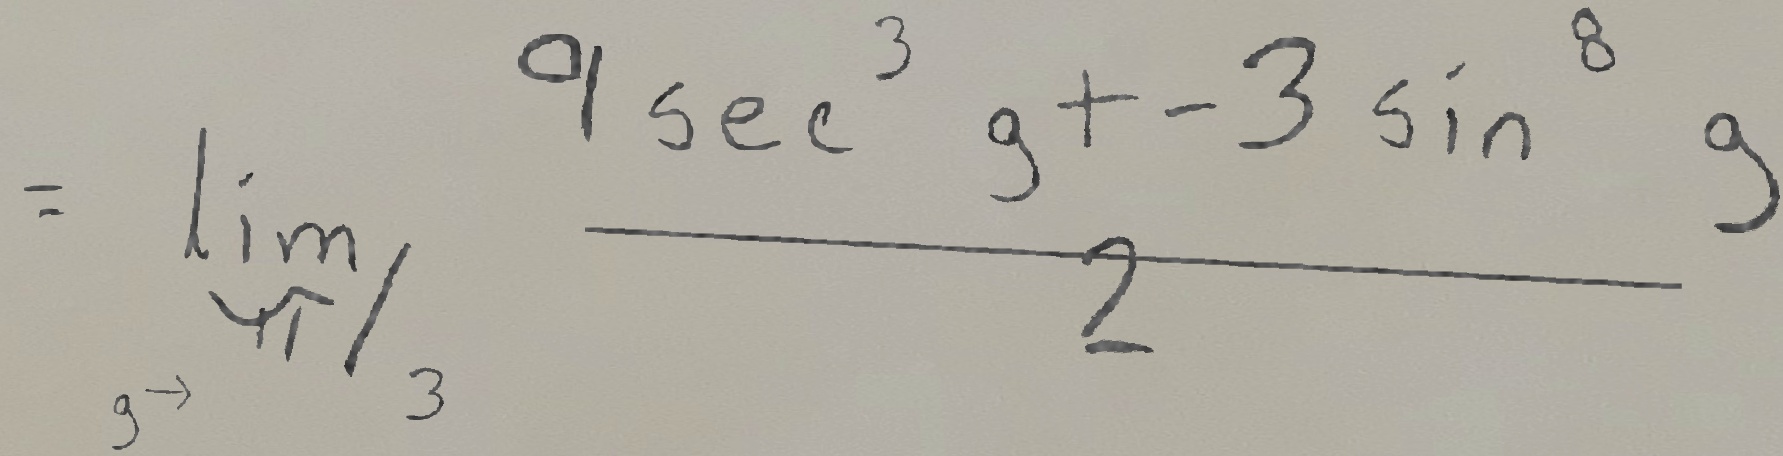 = lim g→π/3 (9 sec^3 g + -3 sin^8 g) / 2